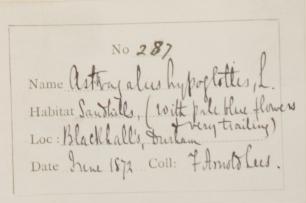 No 287
Name Astragalus hypoglottis, L.
Habitat Sandhills, (with pale blue flowers
& very trailing)
Loc: Blackhalls, Durham
Date June 1872 Coll: F Arnold Lees.